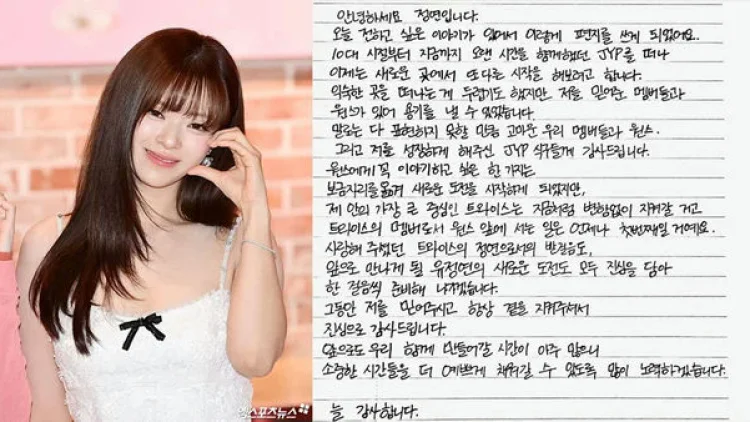 안녕하세요 정연입니다.
오늘 전하고 싶은 이야기가 있어서 이렇게 편지를 쓰게 되었어요.
10대 시절부터 지금까지 오랜 시간을 함께했던 JYP를 떠나
이제는 새로운 곳에서 또 다른 시작을 해보려고 합니다.
익숙한 곳을 떠나는 게 두렵기도 했지만 저를 믿어준 멤버들과
원스가 있어 용기를 낼 수 있었습니다.
말로는 다 표현하지 못할 만큼 고마운 우리 멤버들과 원스.
그리고 저를 성장하게 해주신 JYP 식구들께 감사드립니다.
원스에게 꼭 이야기하고 싶은 한 가지는
보금자리를 옮겨 새로운 도전을 시작하게 되었지만,
제 안의 가장 큰 중심인 트와이스는 지금처럼 변함없이 지켜갈 거고
트와이스의 멤버로서 원스 앞에 서는 일은 언제나 첫번째일 거예요.
사랑해 주셨던 트와이스의 정연으로서의 발걸음도,
앞으로 만나게 될 유정연의 새로운 도전도 모두 진심을 담아
한 걸음씩 준비해 나가겠습니다.
그동안 저를 믿어주시고 항상 곁을 지켜주셔서
진심으로 감사드립니다.
앞으로도 우리 함께 만들어갈 시간이 아주 많으니
소중한 시간들을 더 예쁘게 채워갈 수 있도록 많이 노력하겠습니다.
늘 감사합니다.
엑스포츠뉴스